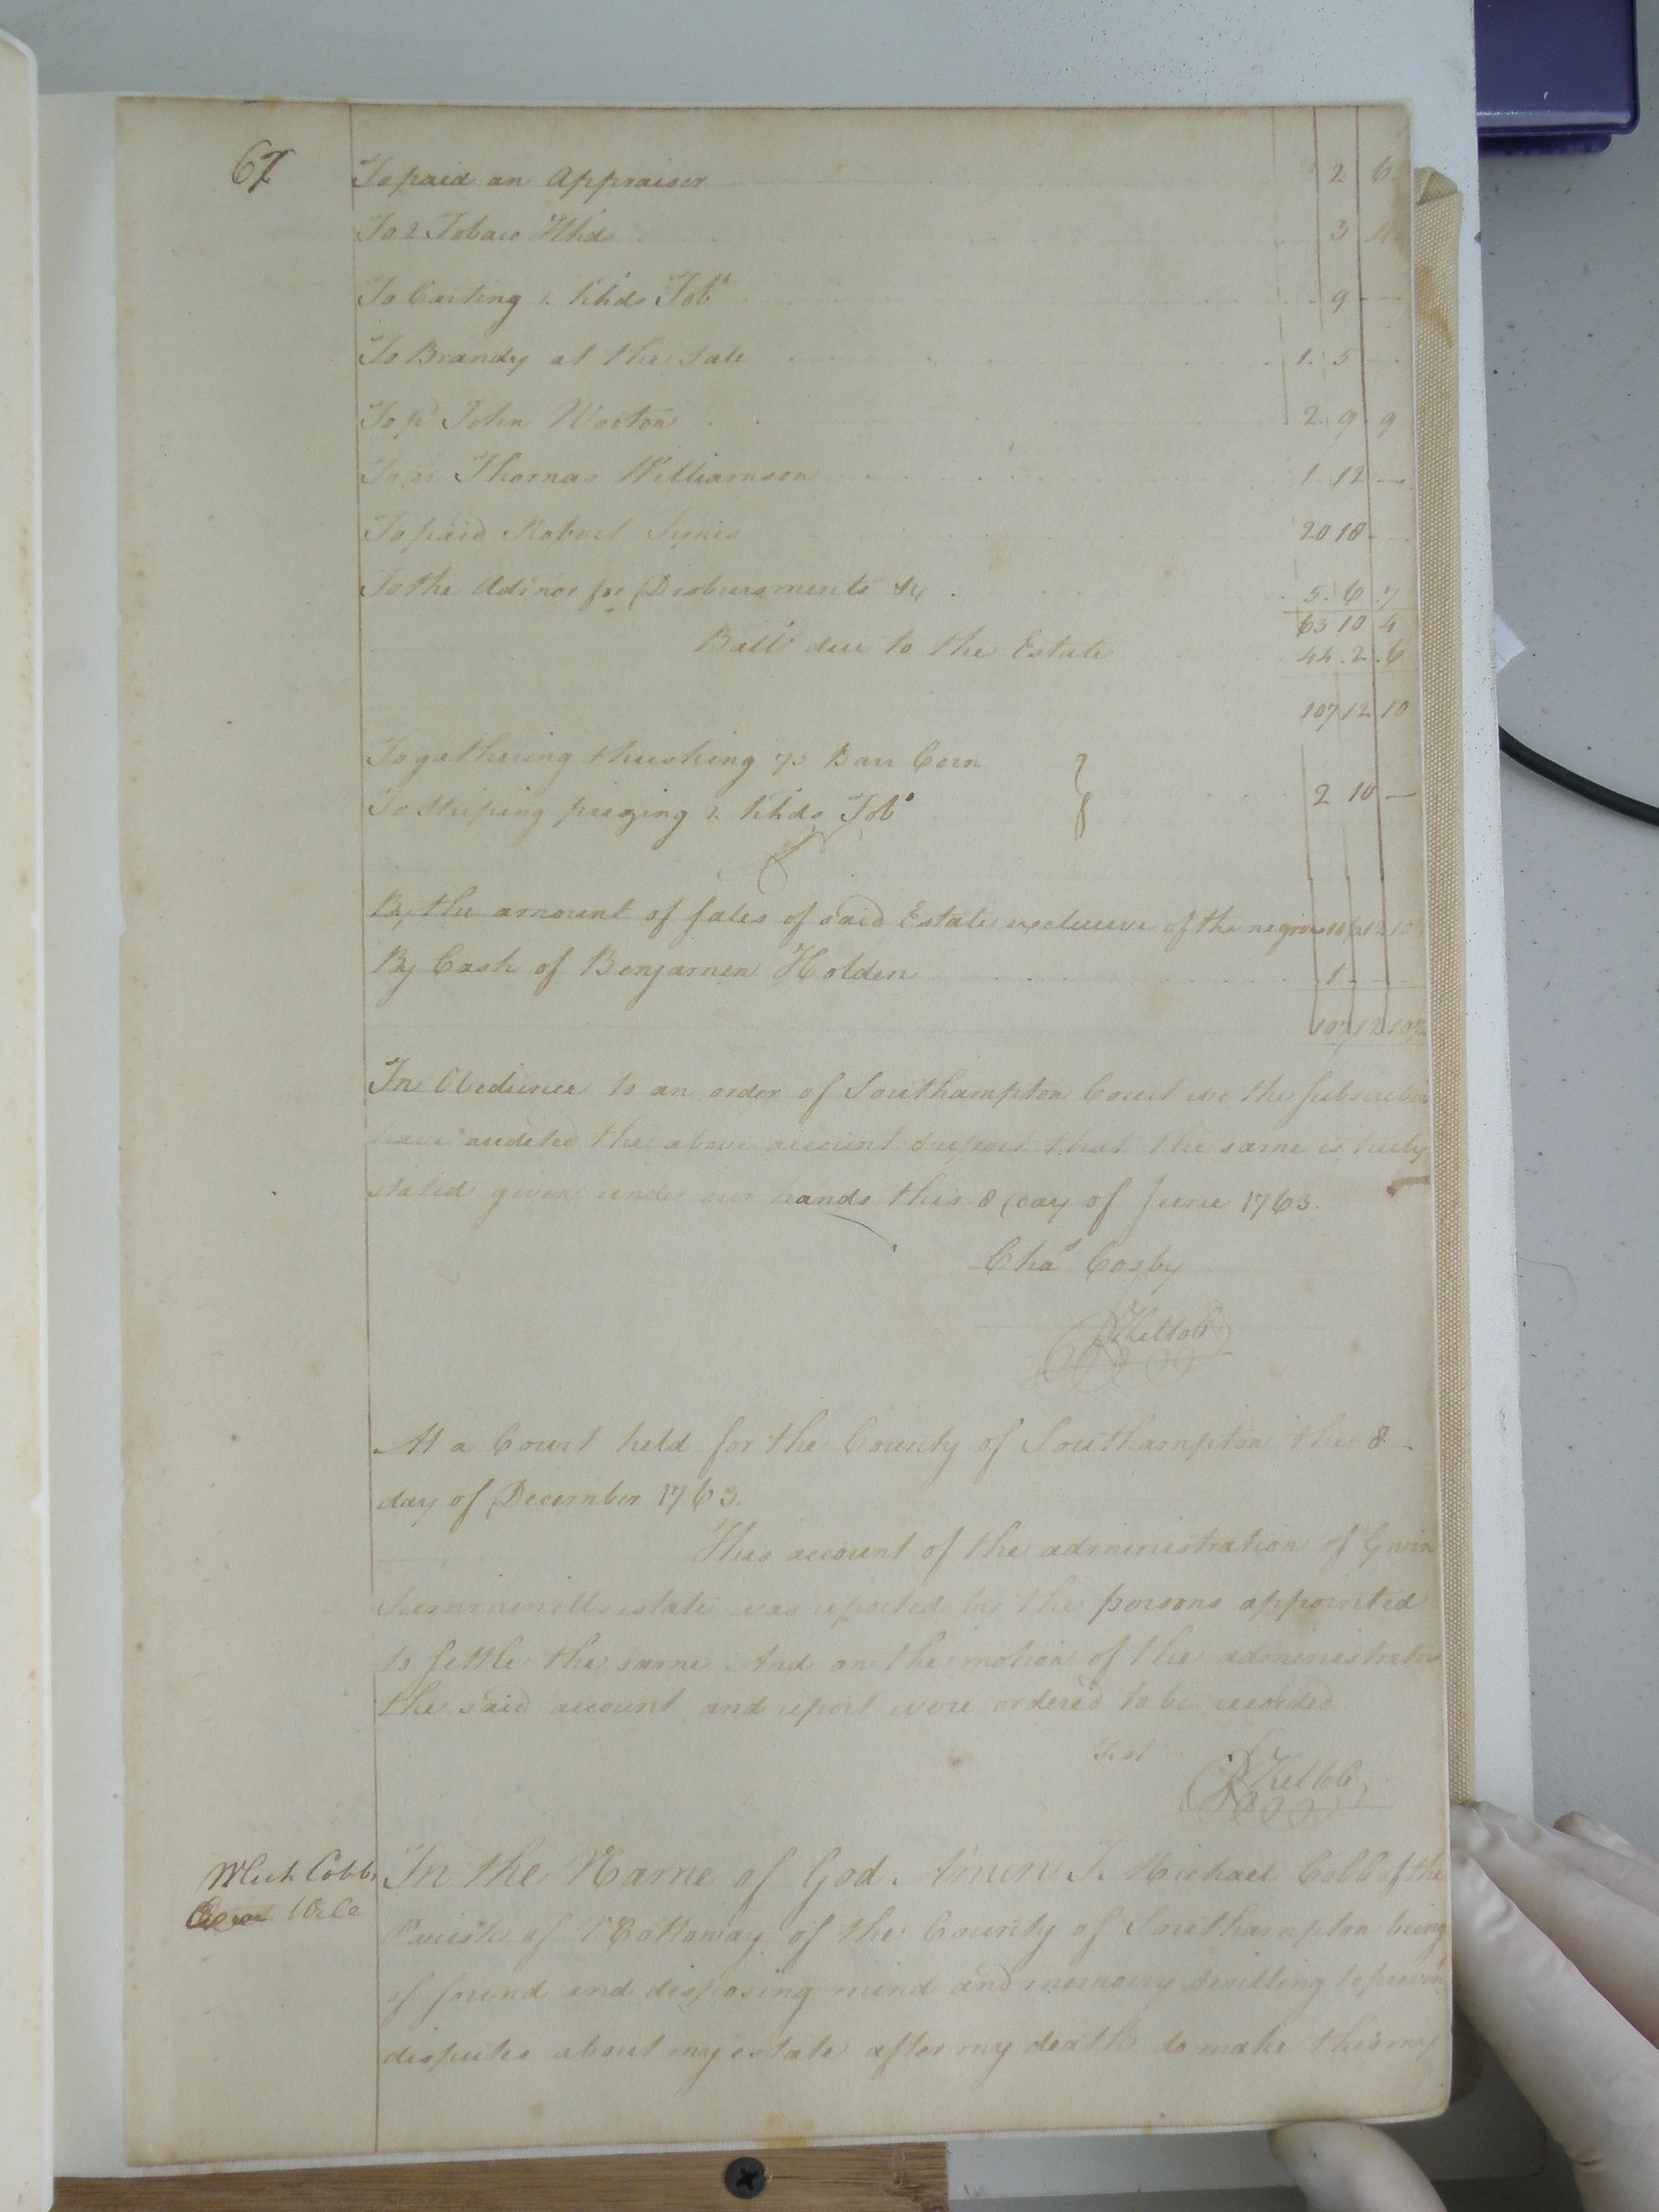 67
To paid an Appraiser 2 6
To 2 Tobaco Hhds 3 4
To Carting 2 hhds Tobo 9 —
To Brandy at the Sale 1. 5 —
To pd John Wooton 2. 9. 9
To pd Thomas Williamson 1 12 —
To paid Robert 20 18 —
To the Adinor for Disbursments &c 5. 6. 7
63 10 4
Balle due to the Estate 44. 2. 6
107 12 10
To gathering thrushing 75 Barr Corn
To Striping prizing 2 hhds Tobo 2 10 —
By the amount of sales of said Estate exclusive of the negroes 106 12 10
By Cash of Benjamen Holden 1 - -
107 12 10
In Obedience to an order of Southampton Court we the subscribers
have audited the above account & report that the same is truly
stated given under our hands this 8 day of June 1763.
Chas Cosby
RKelloC
At a Court held for the County of Southampton the 8
day of December 1763.
This account of the administration of Gwin
Summerells estate was reported by the persons appointed
to settle the same And on the motion of the administrator
the said account and report were ordered to be recorded
Test
RKelloC
Mich Cobb,
Will
In the Name of God. Amen I. Michael Cobb of the
Parish of Nottoway of the County of Southampton being
of sound and disposing mind and memory & willing to prevent
disputes about my estate after my death do make this my